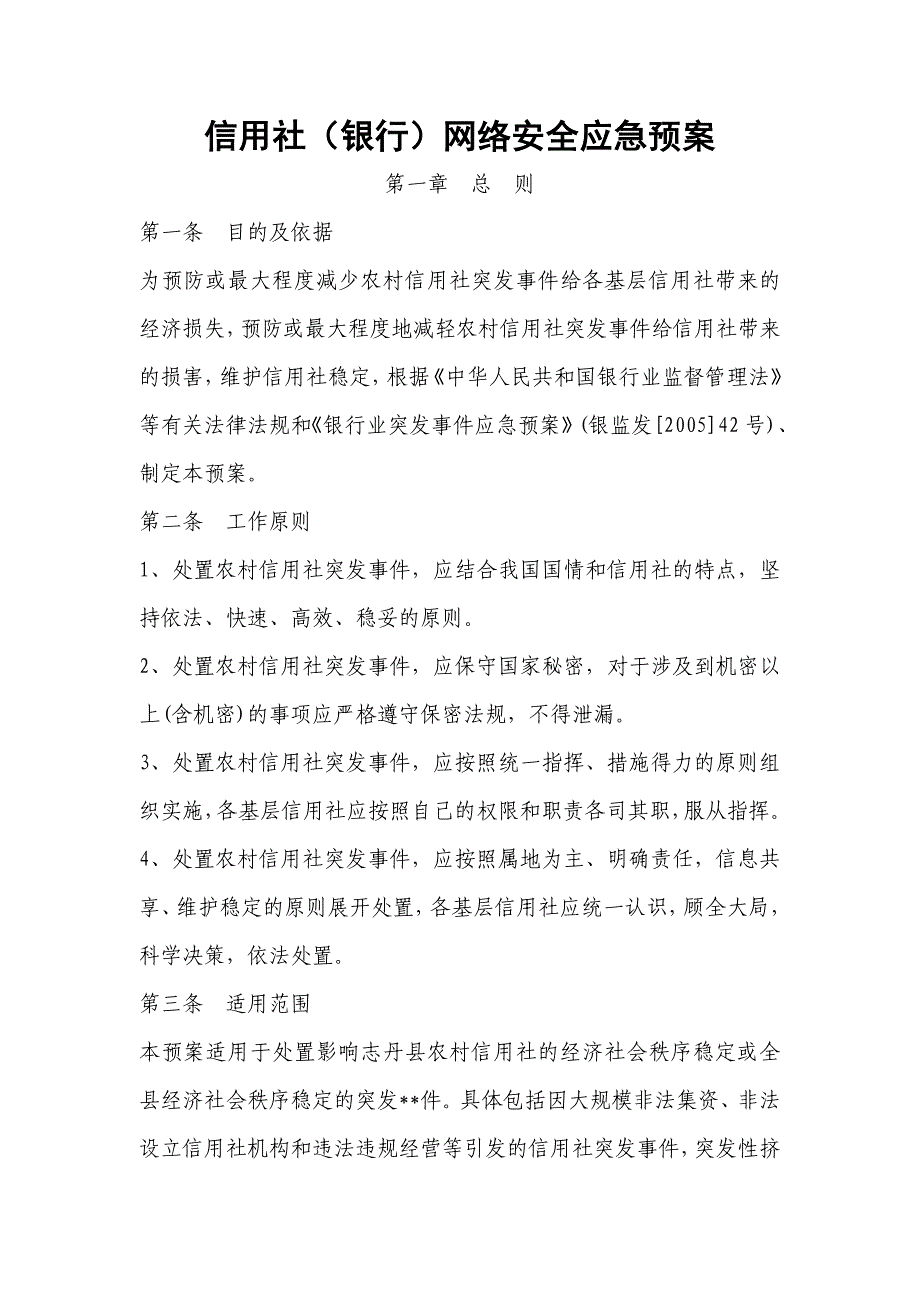 信用社（银行）网络安全应急预案
第一章　总　则
第一条　目的及依据
为预防或最大程度减少农村信用社突发事件给各基层信用社带来的
经济损失，预防或最大程度地减轻农村信用社突发事件给信用社带来
的损害，维护信用社稳定，根据《中华人民共和国银行业监督管理法》
等有关法律法规和《银行业突发事件应急预案》(银监发[2005]42号)、
制定本预案。
第二条　工作原则
1、处置农村信用社突发事件，应结合我国国情和信用社的特点，坚
持依法、快速、高效、稳妥的原则。
2、处置农村信用社突发事件，应保守国家秘密，对于涉及到机密以
上(含机密)的事项应严格遵守保密法规，不得泄漏。
3、处置农村信用社突发事件，应按照统一指挥、措施得力的原则组
织实施，各基层信用社应按照自己的权限和职责各司其职，服从指挥。
4、处置农村信用社突发事件，应按照属地为主、明确责任，信息共
享、维护稳定的原则展开处置，各基层信用社应统一认识，顾全大局，
科学决策，依法处置。
第三条　适用范围
本预案适用于处置影响志丹县农村信用社的经济社会秩序稳定或全
县经济社会秩序稳定的突发**件。具体包括因大规模非法集资、非法
设立信用社机构和违法违规经营等引发的信用社突发事件，突发性挤